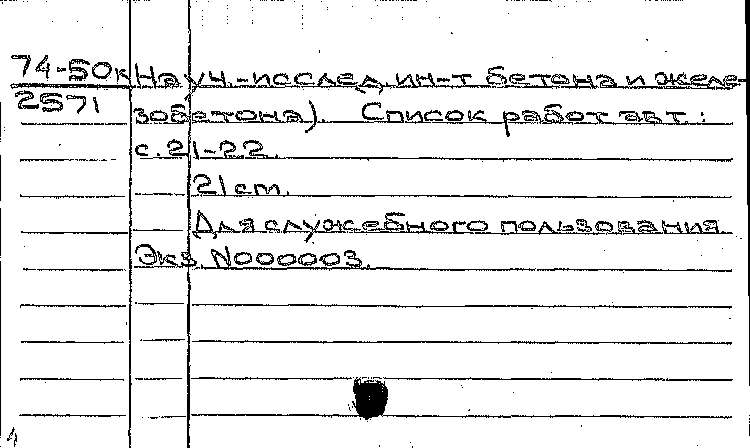 74-50к Науч.-исслед. ин-т бетона и желе-
2571 зобетона). Список работ авт.:
с. 21-22.
21 ст.
Для служебного пользования.
Экз. N000003.